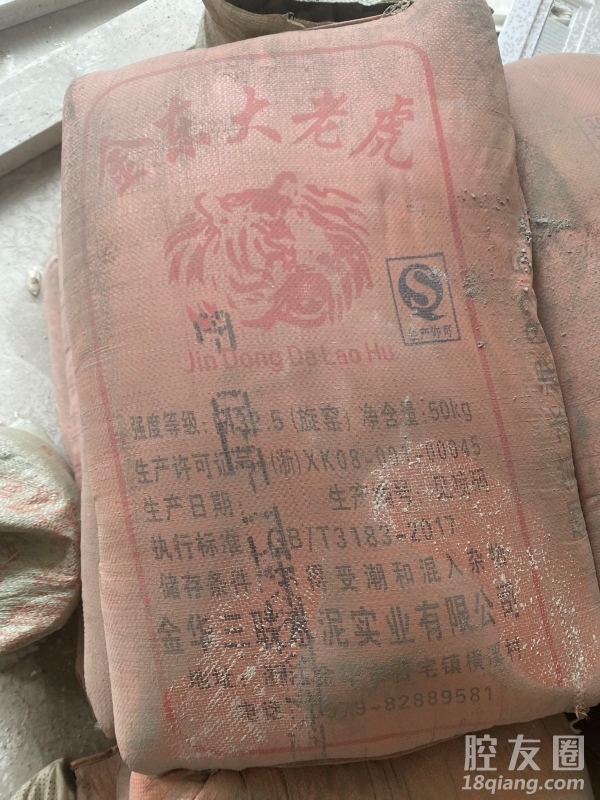 金东大老虎
生产许可
Jin Dong Da Lao Hu
强度等级: M32.5 (旋窑) 净含量:50kg
生产许可证号: (浙)XK08-001-00045
生产日期: 生产编号: 见喷码
执行标准: GB/T3183-2017
储存条件: 不得受潮和混入杂物
金华三联水泥实业有限公司
宅镇横溪村
电话: 0579-82889581
腔友圈
18qiang.com